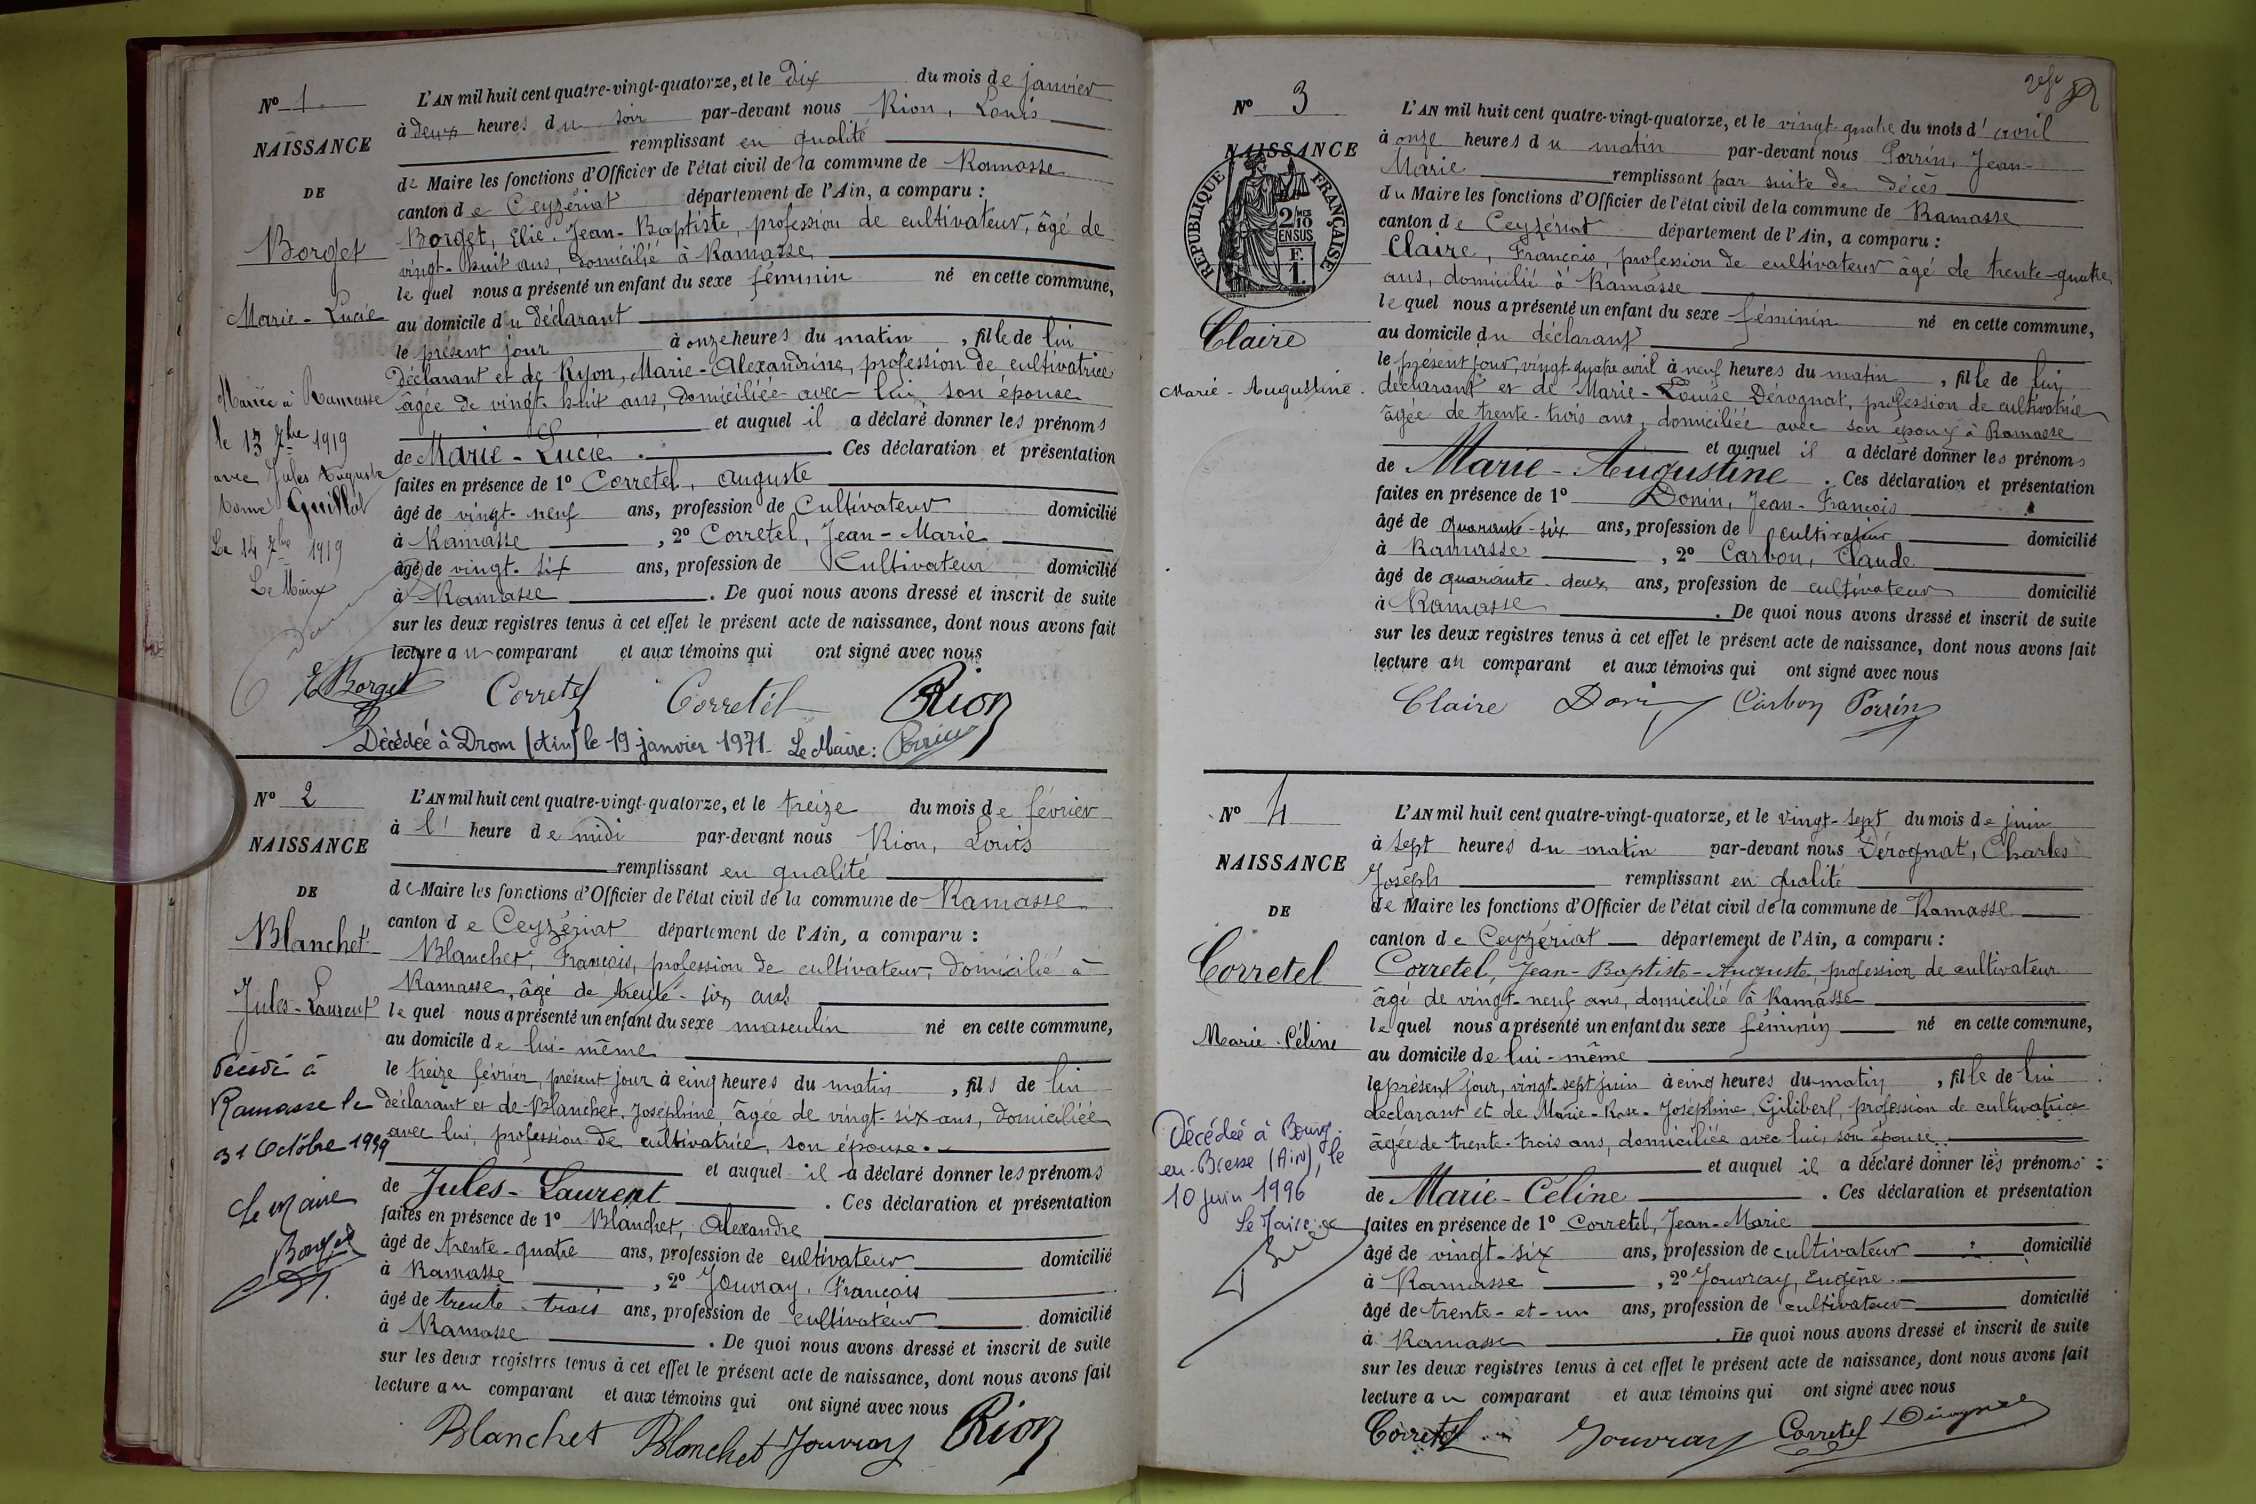 Nº 1
NAISSANCE
DE
Borget
Marie-Lucie
Mariée à Ramasse
le 13 7bre 1919
avec Jules Auguste
Guillot
Le 14 7bre 1919
Le Maire
L'AN mil huit cent quatre-vingt-quatorze, et le dix du mois de janvier
à deux heures du soir par-devant nous Rion, Louis
remplissant en qualité
de Maire les fonctions d'Officier de l'état civil de la commune de Ramasse
canton de Ceyzériat département de l'Ain, a comparu :
Borget, Elie-Jean-Baptiste, profession de cultivateur, âgé de
vingt-huit ans, domicilié à Ramasse
lequel nous a présenté un enfant du sexe féminin né en cette commune,
au domicile du déclarant
le présent jour à onze heures du matin, fille de lui
déclarant et de Ryon, Marie-Alexandrine, profession de cultivatrice
âgée de vingt-huit ans, domiciliée avec lui, son épouse
et auquel il a déclaré donner les prénoms
de Marie-Lucie. Ces déclaration et présentation
faites en présence de 1º Corretel, Auguste
âgé de vingt-neuf ans, profession de cultivateur domicilié
à Ramasse, 2º Corretel, Jean-Marie
âgé de vingt-six ans, profession de cultivateur domicilié
à Ramasse. De quoi nous avons dressé et inscrit de suite
sur les deux registres tenus à cet effet le présent acte de naissance, dont nous avons fait
lecture au comparant et aux témoins qui ont signé avec nous
E Borget Corretel Corretel Rion
Décédée à Drom (Ain) le 19 janvier 1971. Le Maire :
Nº 2
NAISSANCE
DE
Blanchet
Jules-Laurent
Décédé à
Ramasse le
31 Octobre 1939
Le Maire
Borget
L'AN mil huit cent quatre-vingt-quatorze, et le treize du mois de février
à l' heure de midi par-devant nous Rion, Louis
remplissant en qualité
de Maire les fonctions d'Officier de l'état civil de la commune de Ramasse
canton de Ceyzériat département de l'Ain, a comparu :
Blanchet, François, profession de cultivateur, domicilié à
Ramasse, âgé de trente-six ans
lequel nous a présenté un enfant du sexe masculin né en cette commune,
au domicile de lui-même
le treize février, présent jour à cinq heures du matin, fils de lui
déclarant et de Blanchet, Joséphine âgée de vingt-six ans, domiciliée
avec lui, profession de cultivatrice, son épouse.
et auquel il a déclaré donner les prénoms
de Jules-Laurent. Ces déclaration et présentation
faites en présence de 1º Blanchet, Alexandre
âgé de trente-quatre ans, profession de cultivateur domicilié
à Ramasse, 2º Jouvray, François
âgé de trente-trois ans, profession de cultivateur domicilié
à Ramasse. De quoi nous avons dressé et inscrit de suite
sur les deux registres tenus à cet effet le présent acte de naissance, dont nous avons fait
lecture au comparant et aux témoins qui ont signé avec nous
Blanchet Blanchet Jouvray Rion
Nº 3
NAISSANCE
RÉPUBLIQUE FRANÇAISE
2/10 EN SUS
F. 1.
Claire
Marie-Augustine.
L'AN mil huit cent quatre-vingt-quatorze, et le vingt-quatre du mois d'avril
à onze heures du matin par-devant nous Porrin, Jean-
Marie remplissant par suite de décès
du Maire les fonctions d'Officier de l'état civil de la commune de Ramasse
canton de Ceyzériat département de l'Ain, a comparu :
Claire, François, profession de cultivateur âgé de trente-quatre
ans, domicilié à Ramasse
lequel nous a présenté un enfant du sexe féminin né en cette commune,
au domicile du déclarant
le présent jour, vingt-quatre avril à neuf heures du matin, fille de lui
déclarant et de Marie-Louise Dérognat, profession de cultivatrice
âgée de trente-trois ans, domiciliée avec son époux à Ramasse
et auquel il a déclaré donner les prénoms
de Marie-Augustine. Ces déclaration et présentation
faites en présence de 1º Donin, Jean-François
âgé de quarante-six ans, profession de cultivateur domicilié
à Ramasse, 2º Carbon, Claude
âgé de quarante-deux ans, profession de cultivateur domicilié
à Ramasse. De quoi nous avons dressé et inscrit de suite
sur les deux registres tenus à cet effet le présent acte de naissance, dont nous avons fait
lecture au comparant et aux témoins qui ont signé avec nous
Claire Donin Carbon Porrin
Nº 4
NAISSANCE
DE
Corretel
Marie-Céline
Décédée à Bourg-
en-Bresse (Ain), le
10 juin 1996
Le Maire
L'AN mil huit cent quatre-vingt-quatorze, et le vingt-sept du mois de juin
à sept heures du matin par-devant nous Dérognat, Charles
Joseph remplissant en qualité
de Maire les fonctions d'Officier de l'état civil de la commune de Ramasse
canton de Ceyzériat département de l'Ain, a comparu :
Corretel, Jean-Baptiste-Auguste, profession de cultivateur
âgé de vingt-neuf ans, domicilié à Ramasse
lequel nous a présenté un enfant du sexe féminin né en cette commune,
au domicile de lui-même
le présent jour, vingt-sept juin à cinq heures du matin, fille de lui
déclarant et de Marie-Rose-Joséphine Gilibert, profession de cultivatrice
âgée de trente-trois ans, domiciliée avec lui, son épouse
et auquel il a déclaré donner les prénoms
de Marie-Céline. Ces déclaration et présentation
faites en présence de 1º Corretel, Jean-Marie
âgé de vingt-six ans, profession de cultivateur domicilié
à Ramasse, 2º Jouvray, Eugène
âgé de trente-et-un ans, profession de cultivateur domicilié
à Ramasse. De quoi nous avons dressé et inscrit de suite
sur les deux registres tenus à cet effet le présent acte de naissance, dont nous avons fait
lecture au comparant et aux témoins qui ont signé avec nous
Corretel Jouvray Corretel Dérognat